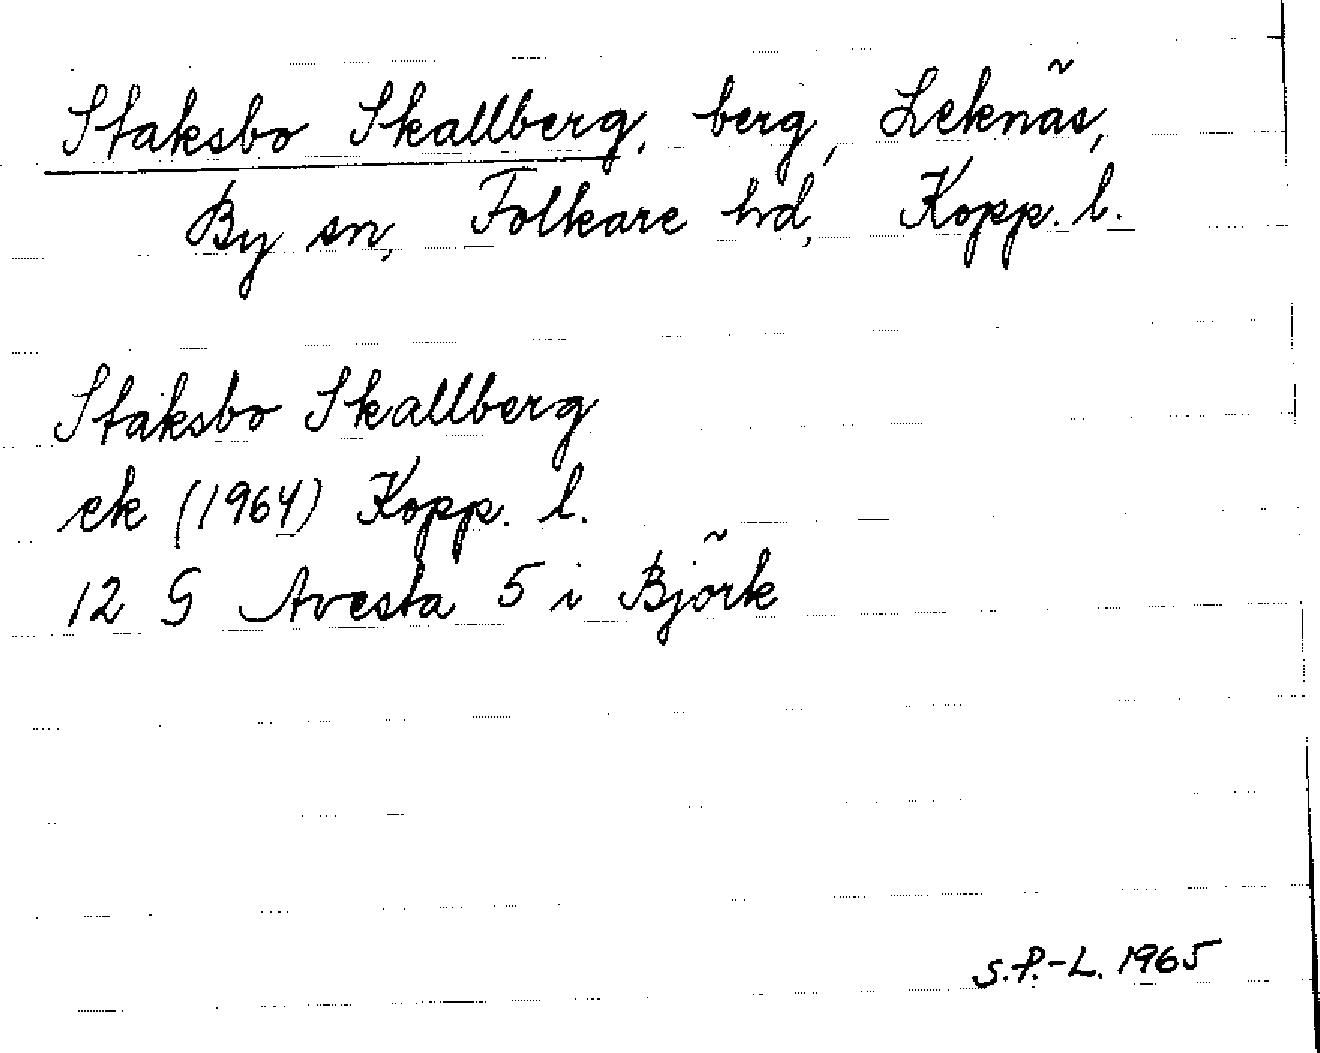 Staksbo Skallberg, berg, Leknäs,
By sn, Folkare hd, Kopp. l.
Staksbo Skallberg
ek (1964) Kopp. l.
12 G Avesta 5 i Björk
S.P.-L. 1965